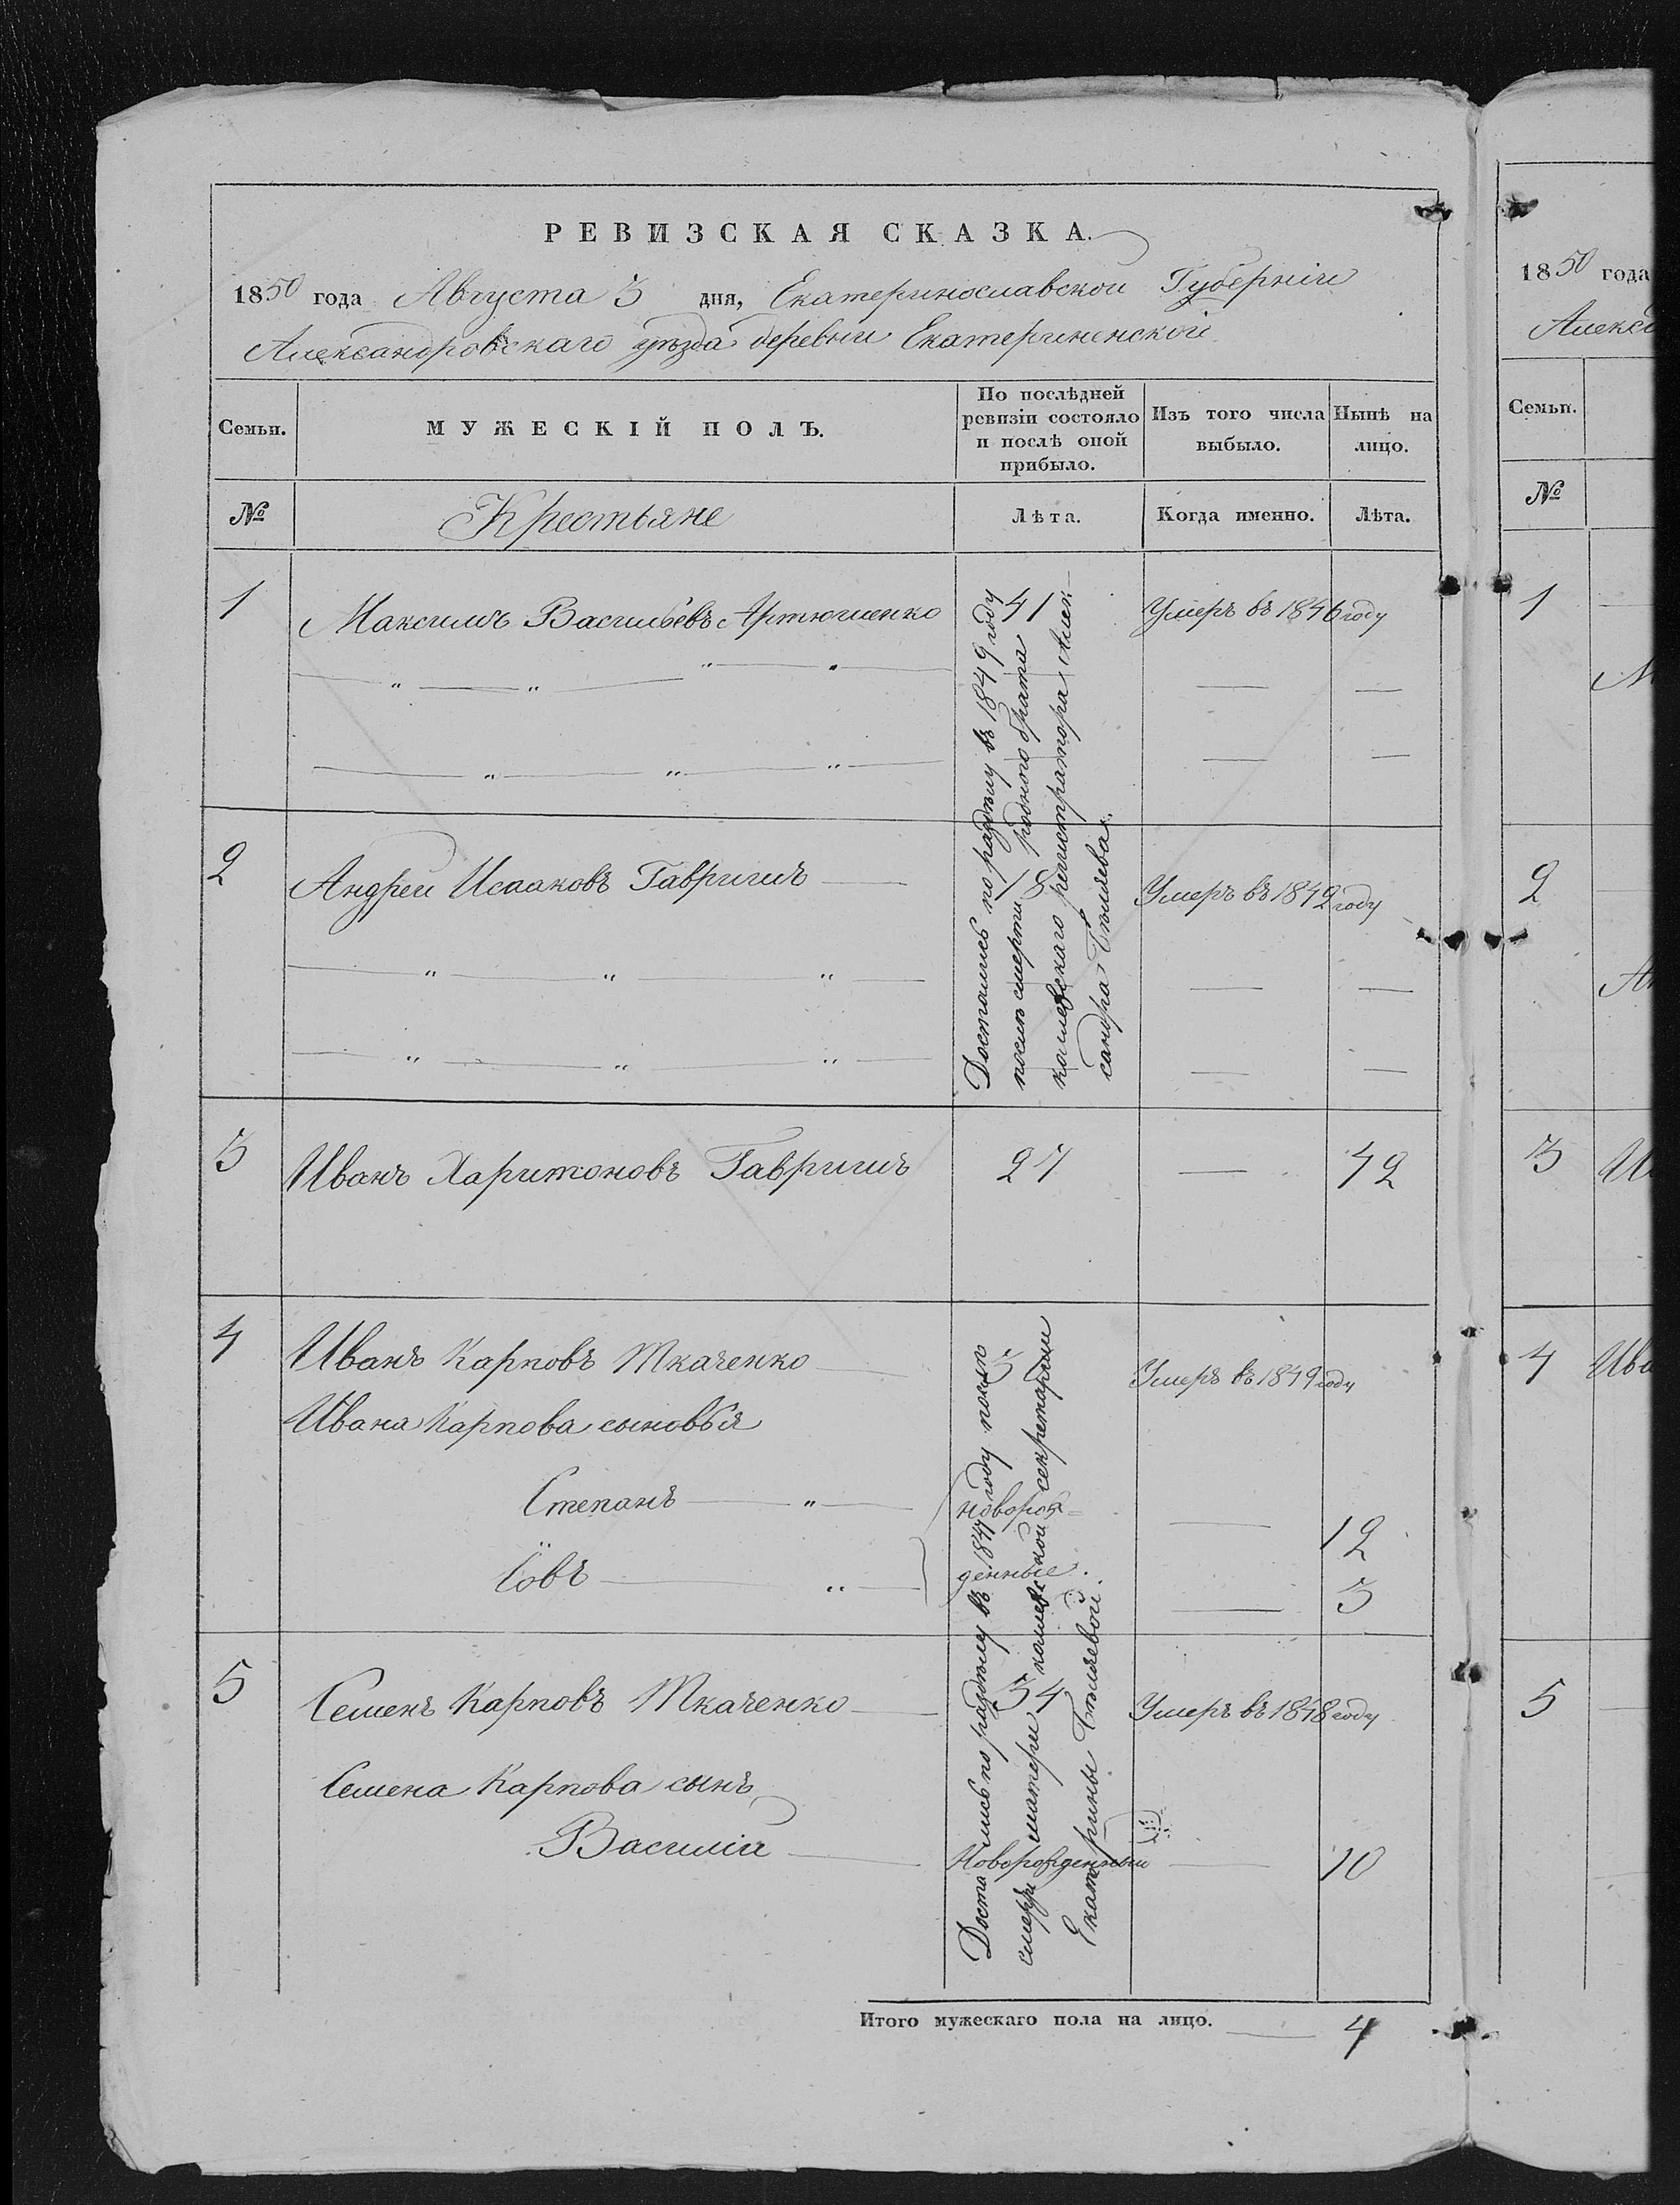 РЕВИЗСКАЯ СКАЗКА.
1850 года Августа 3 дня, Екатеринославской Губерніи
Александровскаго уѣзда деревни Екатериненской
Семьи.
МУЖЕСКІЙ ПОЛЪ.
По послѣдней ревизіи состояло и послѣ оной прибыло.
Изъ того числа выбыло.
Нынѣ на лицо.
№
Крестьяне
Лѣта.
Когда именно.
Лѣта.
1 Максимъ Васильевъ Артюшенко 41 Умеръ въ 1846 году
Достались по раздѣлу въ 1849 году
послѣ смерти роднаго брата
коллежскаго регистратора Алек-
сандра Бѣлячева.
2 Андрей Исааковъ Гавришъ 18 Умеръ въ 1849 году
3 Иванъ Харитоновъ Гавришъ 27 — 42
4 Иванъ Карповъ Ткаченко Умеръ въ 1849 году
Ивана Карпова сыновья
Степанъ — " — новорож= — 12
Іовъ — " — денные. — 3
5 Семенъ Карповъ Ткаченко — 34 Умеръ въ 1848 году
Семена Карпова сынъ
Василій — Новорожденный — 10
Достались по раздѣлу въ 1847 году послѣ
смерти матери коллежской секретарши
Екатерины Бѣлячевой.
Итого мужескаго пола на лицо. — 4
1850 года
Алекса
Семьи.
№
1
М
2
Ан
3 И
4 Ива
5